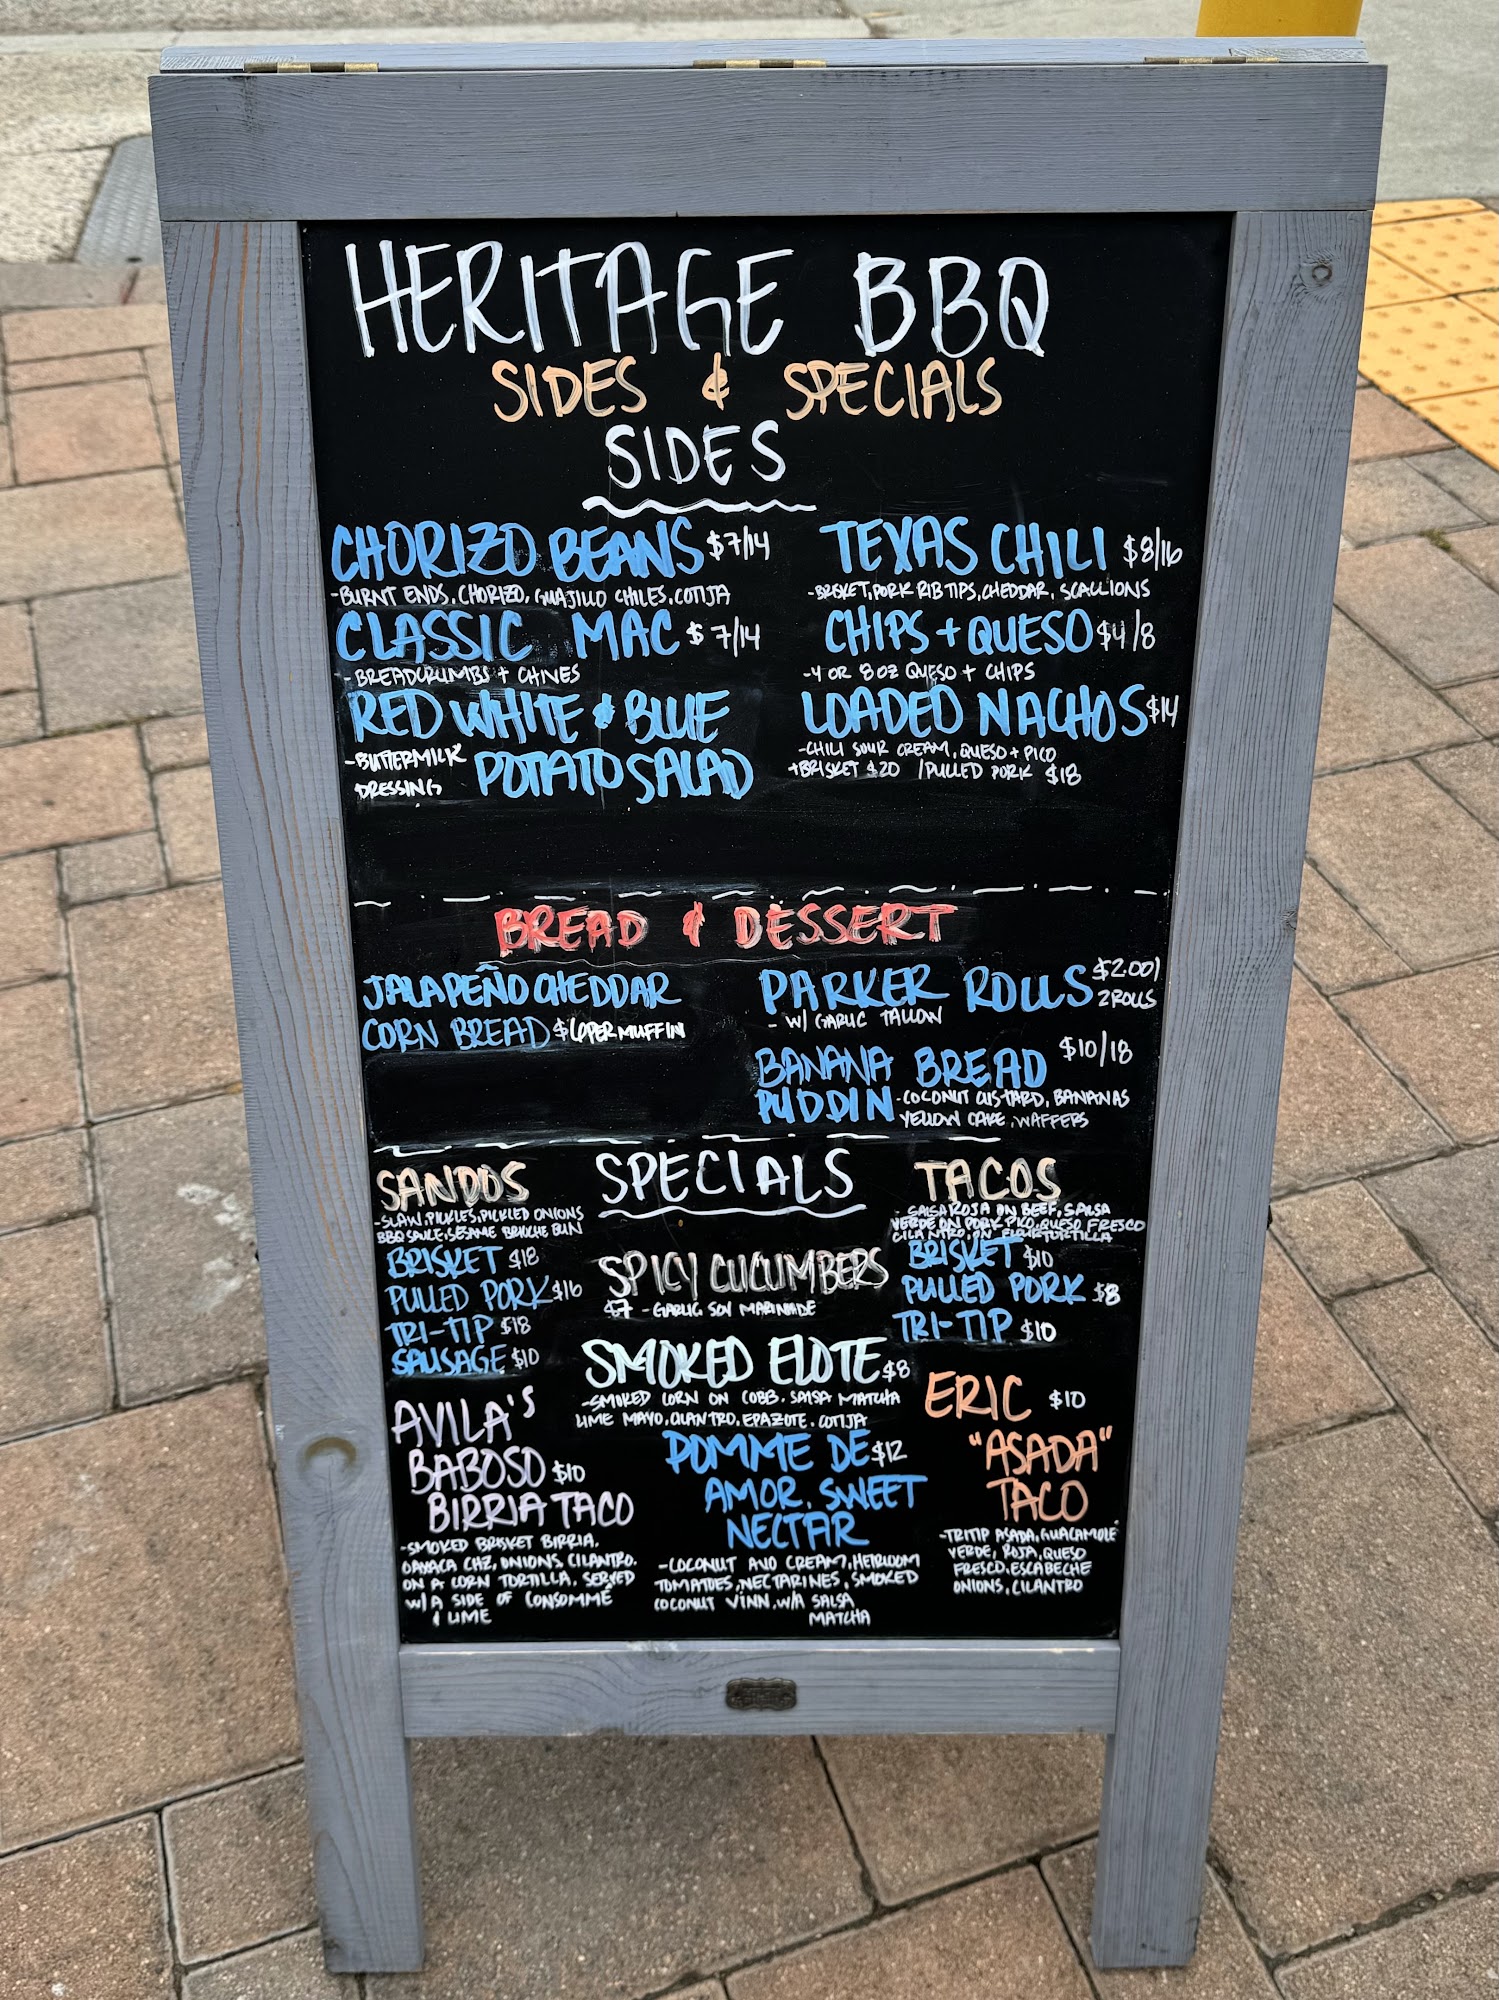 HERITAGE BBQ
SIDES & SPECIALS
SIDES
CHORIZO BEANS $7/14
-BURNT ENDS, CHORIZO, GUAJILLO CHILES, COTIJA
CLASSIC MAC $7/14
-BREADCRUMBS + CHIVES
RED WHITE & BLUE
POTATO SALAD
-BUTTERMILK
DRESSING
TEXAS CHILI $8/16
-BRISKET, PORK RIB TIPS, CHEDDAR, SCALLIONS
CHIPS + QUESO $4/8
-4 OR 8 OZ QUESO + CHIPS
LOADED NACHOS $14
-CHILI SOUR CREAM, QUESO + PICO
+BRISKET $20 /PULLED PORK $18
BREAD & DESSERT
JALAPEÑO CHEDDAR
CORN BREAD $6 PER MUFFIN
PARKER ROLLS $2.00/
2 ROLLS
- W/ GARLIC TALLOW
BANANA BREAD $10/18
PUDDIN -COCONUT CUSTARD, BANANAS
YELLOW CAKE, WAFFERS
SPECIALS
SANDOS
-SLAW, PICKLES, PICKLED ONIONS
BBQ SAUCE, SESAME BRIOCHE BUN
BRISKET $18
PULLED PORK $16
TRI-TIP $18
SAUSAGE $10
AVILA'S
BABOSO $10
BIRRIA TACO
-SMOKED BRISKET BIRRIA,
OAXACA CHZ, ONIONS, CILANTRO,
ON A CORN TORTILLA, SERVED
W/ A SIDE OF CONSOMMÉ
& LIME
SPICY CUCUMBERS
$7 - GARLIC SOY MARINADE
SMOKED ELOTE $8
-SMOKED CORN ON COBB, SALSA MATCHA
LIME MAYO, CILANTRO, EPAZOTE, COTIJA
POMME DE $12
AMOR, SWEET
NECTAR
-COCONUT AVO CREAM, HEIRLOOM
TOMATOES, NECTARINES, SMOKED
COCONUT VINN, W/A SALSA
MATCHA
TACOS
- SALSA ROJA ON BEEF, SALSA
VERDE ON PORK PICO, QUESO FRESCO
CILANTRO, ON FLOUR TORTILLA
BRISKET $10
PULLED PORK $8
TRI-TIP $10
ERIC $10
"ASADA"
TACO
-TRITIP ASADA, GUACAMOLE
VERDE, ROJA, QUESO
FRESCO, ESCABECHE
ONIONS, CILANTRO